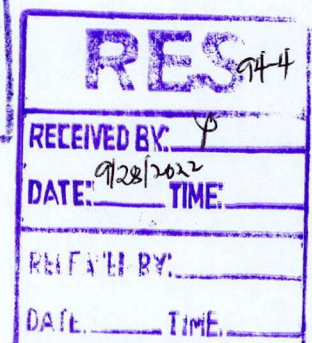 RES 94-4
RECEIVED BY:
DATE: 9/28/2022 TIME:
RELEASED BY:
DATE: TIME: